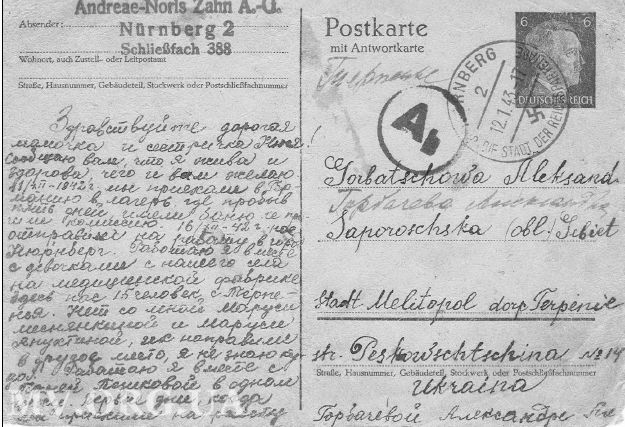 Andreae-Noris Zahn A.-G.
Absender:
Nürnberg 2
Schließfach 388
Wohnort, auch Zustell- oder Leitpostamt
Straße, Hausnummer, Gebäudeteil, Stockwerk oder Postschließfachnummer
Здравствуйте дорогая
мамочка и сестричка Нюся!
Сообщаю вам, что я жива и
здорова, чего и вам желаю
11/XII-1942г. мы приехали в Гер-
манию в лагерь где пробыв
дней имели баню и
комиссию 16/XII-42г. нас
отправили на работу в город
Нюрнберг. Работаю я вместе
с девочками с нашего села
на медицинской фабрике
здесь нас 15 человек с Терпе-
ния. Нет со мной Маруси
и Маруси
их направили
в другое место, я не знаю ку-
да. Работаю я вместе с
Пешковой в одном
дни когда
на работу
Postkarte
mit Antwortkarte
6
6
DEUTSCHES REICH
NÜRNBERG
2
12.1.43.-17
DIE STADT DER REICHSPARTEITAGE
Терпение
Ab
Gorbatschowa Aleksand
Горбачева
Saporoschska (obl.) Gebiet
Stadt Melitopol dorp Terpenie
str. Peskowschtschina № 14
Straße, Hausnummer, Gebäudeteil, Stockwerk oder Postschließfachnummer
Ukraina
Горбачевой Александре